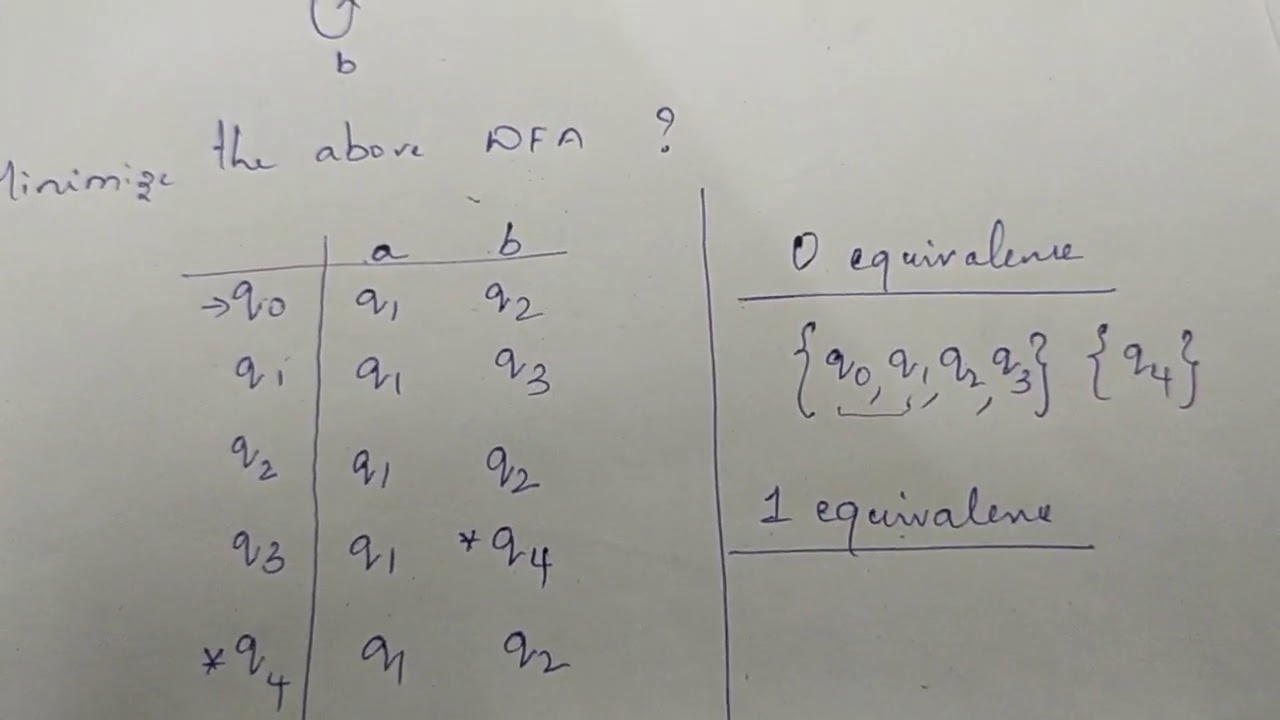 b
Minimize the above DFA ?
a b
→q0 q1 q2
q1 q1 q3
q2 q1 q2
q3 q1 *q4
*q4 q1 q2
0 equivalence
{q0, q1, q2, q3} {q4}
1 equivalence